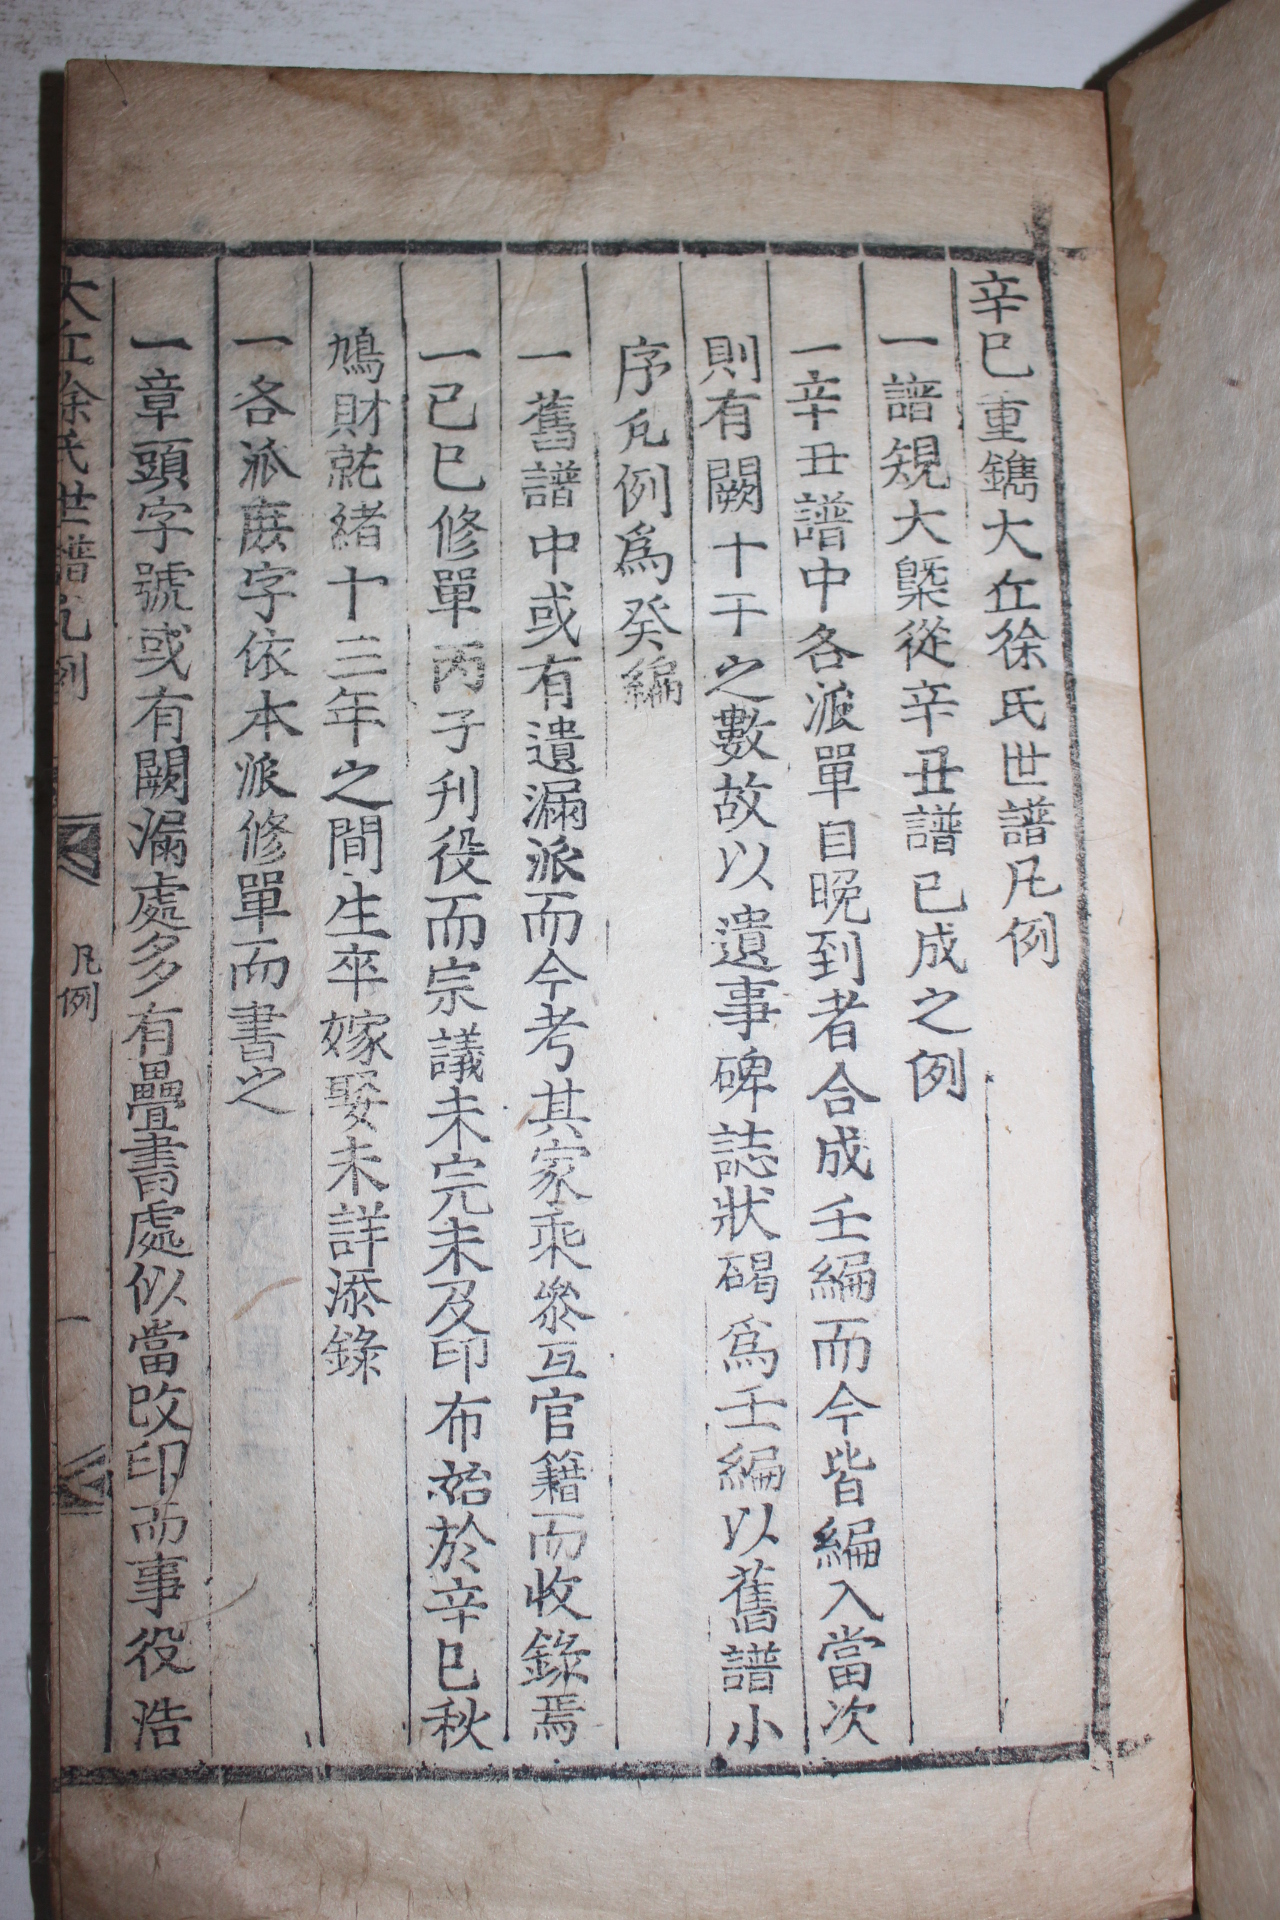 辛巳重鐫大丘徐氏世譜凡例
一譜䂓大槩從辛丑譜已成之例
一辛丑譜中各派單目晩到者合成壬編而今皆編入當次
則有闕十干之數故以遺事碑誌狀碣爲壬編以舊譜小
序凡例爲癸編
一舊譜中或有遺漏派而今考其家乘叅互官籍而收錄焉
一己巳修單丙子刋役而宗議未完未及印布始於辛巳秋
鳩財就緖十三年之間生卒嫁娶未詳添錄
一各派庶字依本派修單而書之
一章頭字號或有闕漏處多有疊書處似當改印而事役浩
大丘徐氏世譜凡例
凡例
一